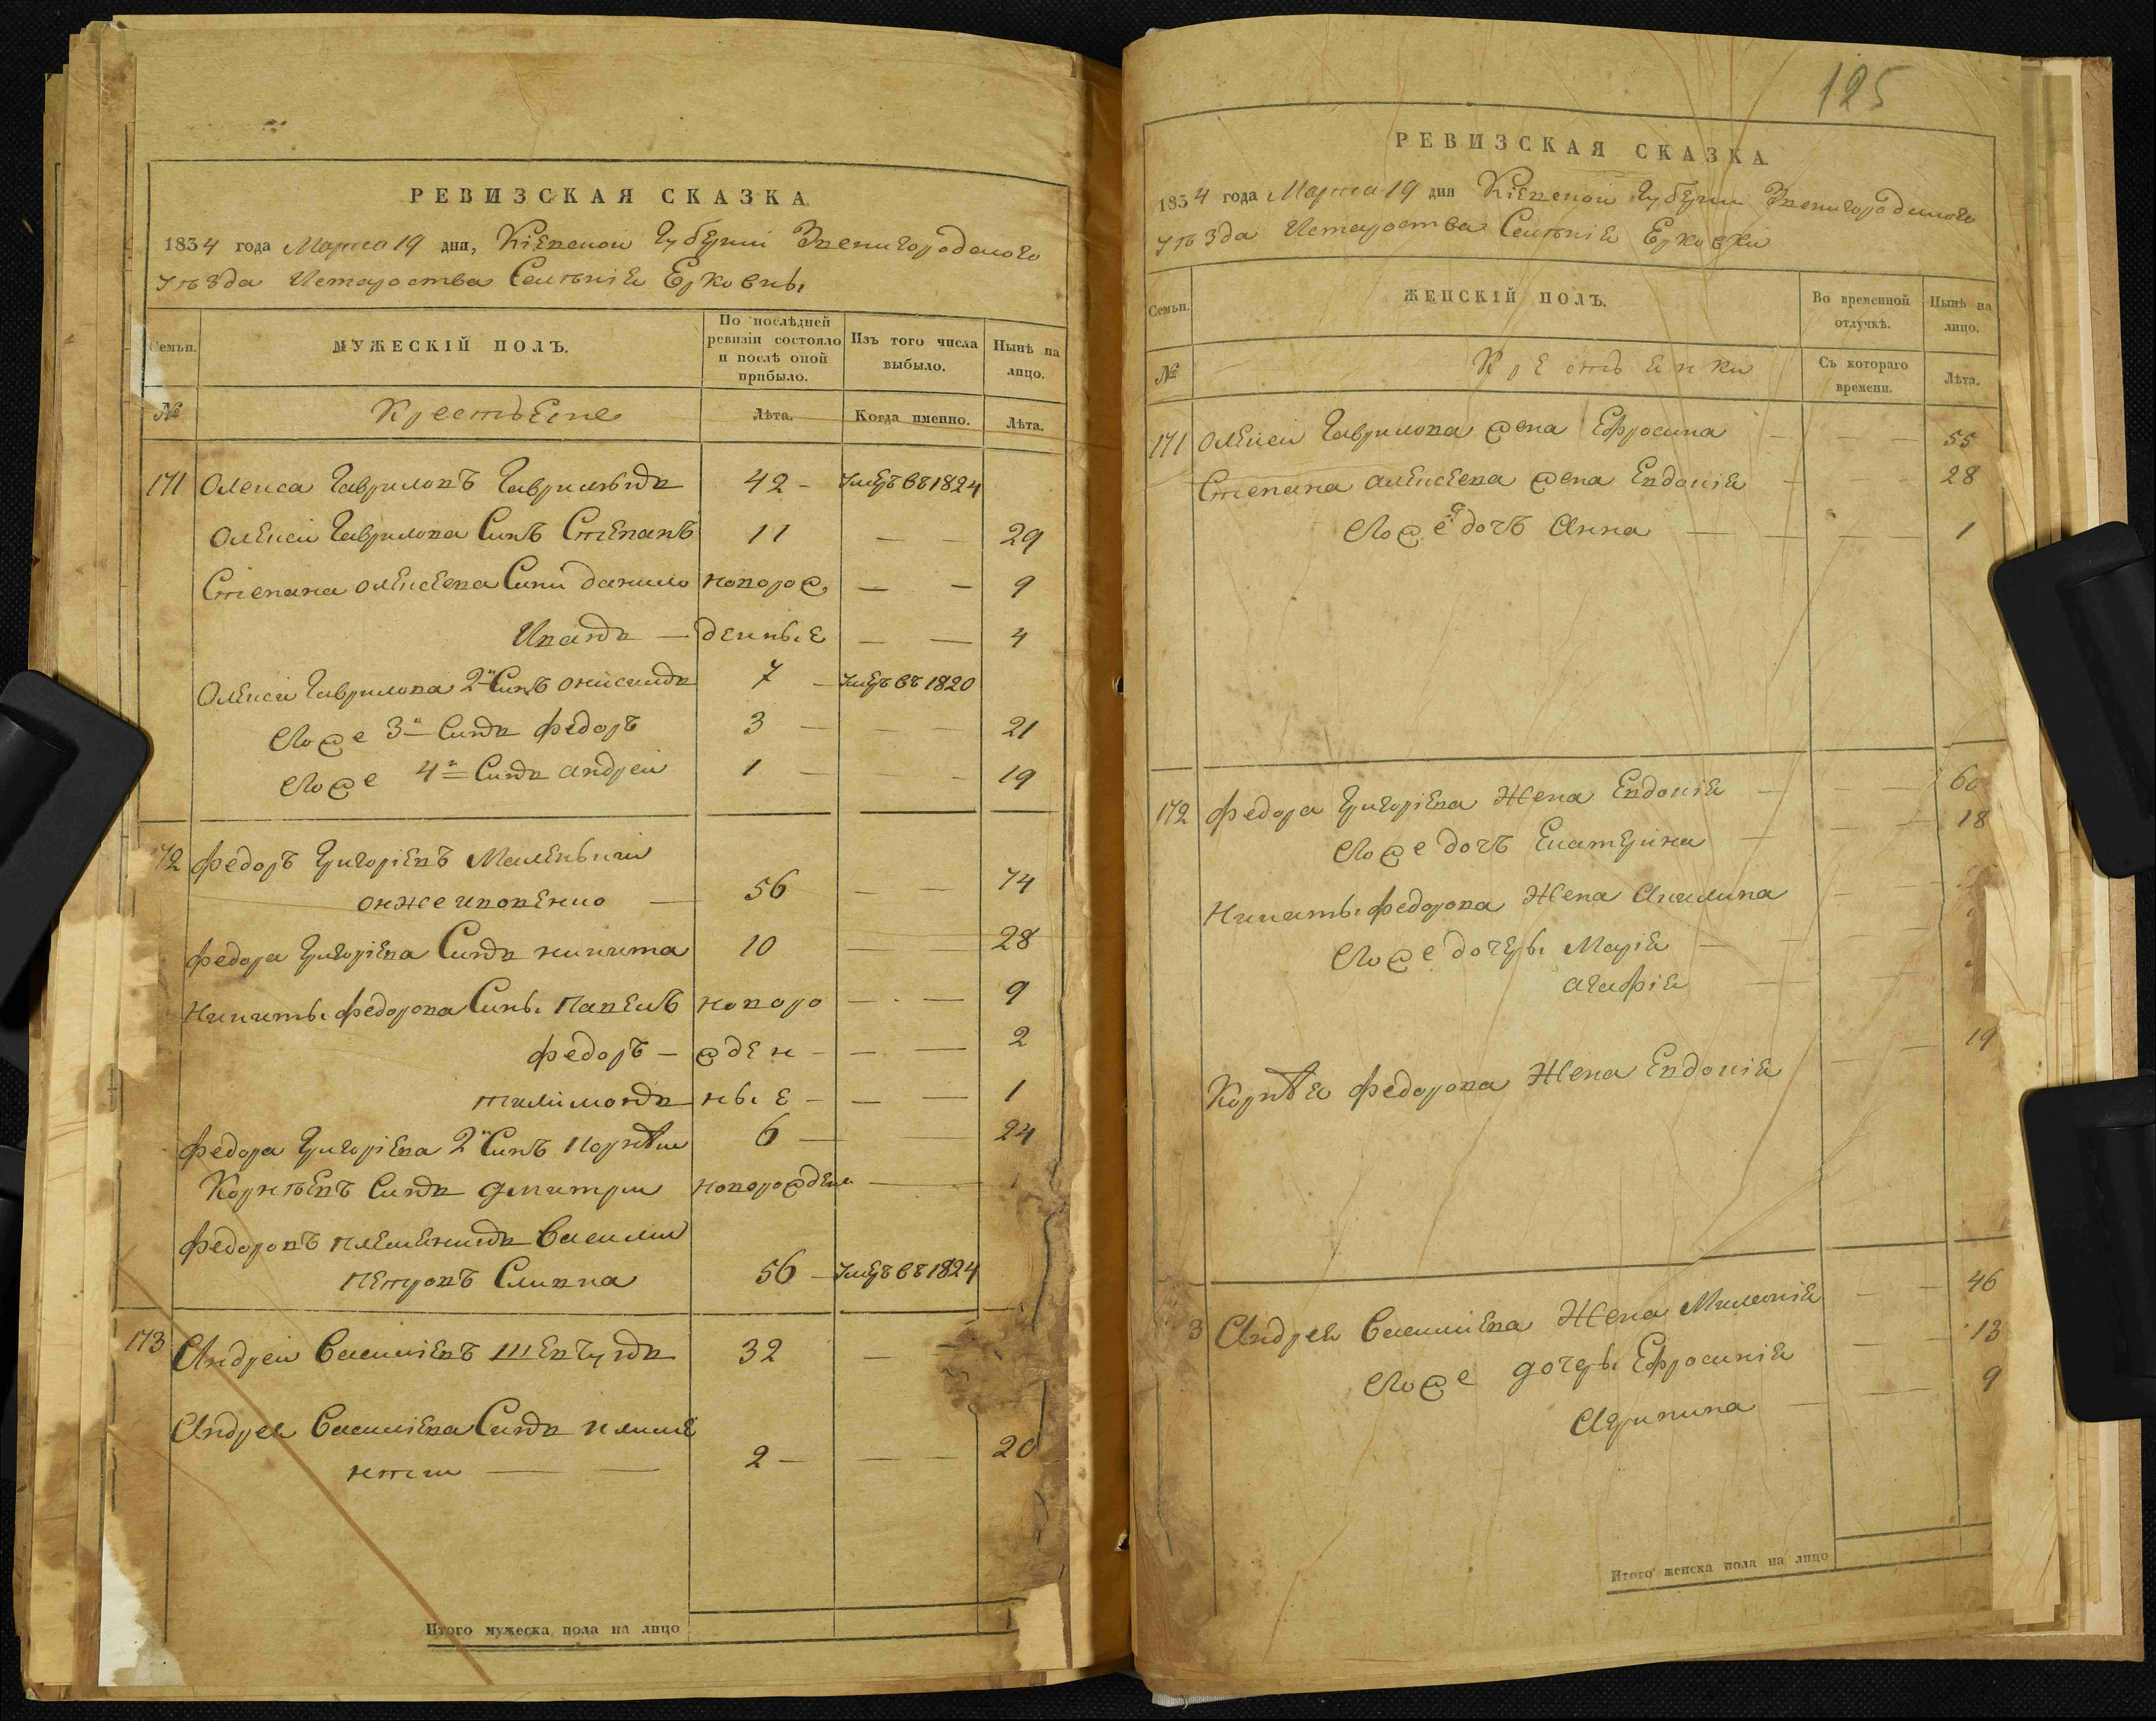 РЕВИЗСКАЯ СКАЗКА.
1834 года Марта 19 дня, Кіевской Губерніи Звенигородского
уѣзда Истароства Селѣнія Ерковцы
Семьи.
МУЖЕСКІЙ ПОЛЪ.
По послѣдней ревизіи состояло и послѣ оной прибыло.
Изъ того числа выбыло.
Нынѣ на лицо.
№
Крестьяне
Лѣта.
Когда именно.
Лѣта.
171 Олекса Гавриловъ 42 - умеръ въ 1824
Олексѣи Гаврилова Синъ Степанъ 11 — — 29
Степана Олексеева Сини данило новорож — — 9
Иванъ — денные — — 4
Олексѣи Гаврилова 2й Синъ 7 - умеръ въ 1820
Его же 3й Синъ федоръ 3 — — — 21
Его же 4й Синъ андреи 1 — — — 19
172 федоръ Григоріевъ
онже — 56 — — 74
федора Григоріева Синъ никита 10 — — 28
Никиты федорова Сины павелъ новоро — - — 9
федоръ — жден - — — 2
ныѣ - — — 1
федора Григоріева 2й Синъ Корнѣи 6 — — 24
Корнѣевъ Синъ дмитри новорожден —
федоровъ племеникъ Васили
петровъ Сливка 56 - умеръ въ 1824
173 Андреи Василіевъ Шевчукъ 32 —
Андрея Василіева Синъ климе
нтии — — 2 - — — 20
Итого мужеска пола на лицо
125
РЕВИЗСКАЯ СКАЗКА.
1834 года Марта 19 дня Кіевской Губерніи Звенигородского
уѣзда Истароства Селѣнія Ерковки
Семьи.
ЖЕНСКІЙ ПОЛЪ.
Во временной отлучкѣ.
Нынѣ на лицо.
№
Крестьянки
Съ котораго времени.
Лѣта.
171 Олексѣи Гаврилова жена Ефросина — — — 55
Степана Алексеева жена Евдокія — — — 28
Его же дочъ Анна — — — — 1
172 федора Григоріева Жена Евдокія — — — 60
Его же дочъ Екатерина — — — 18
Никиты федорова Жена Акилина — —
Его же дочеры Марія — — —
агафія — — —
Корнѣя федорова Жена Евдокія — — 19
3 Андрея Василіева Жена — — 46
Его же дочеры Ефросинія — — 13
Агрипина — — — 9
Итого женска пола на лицо